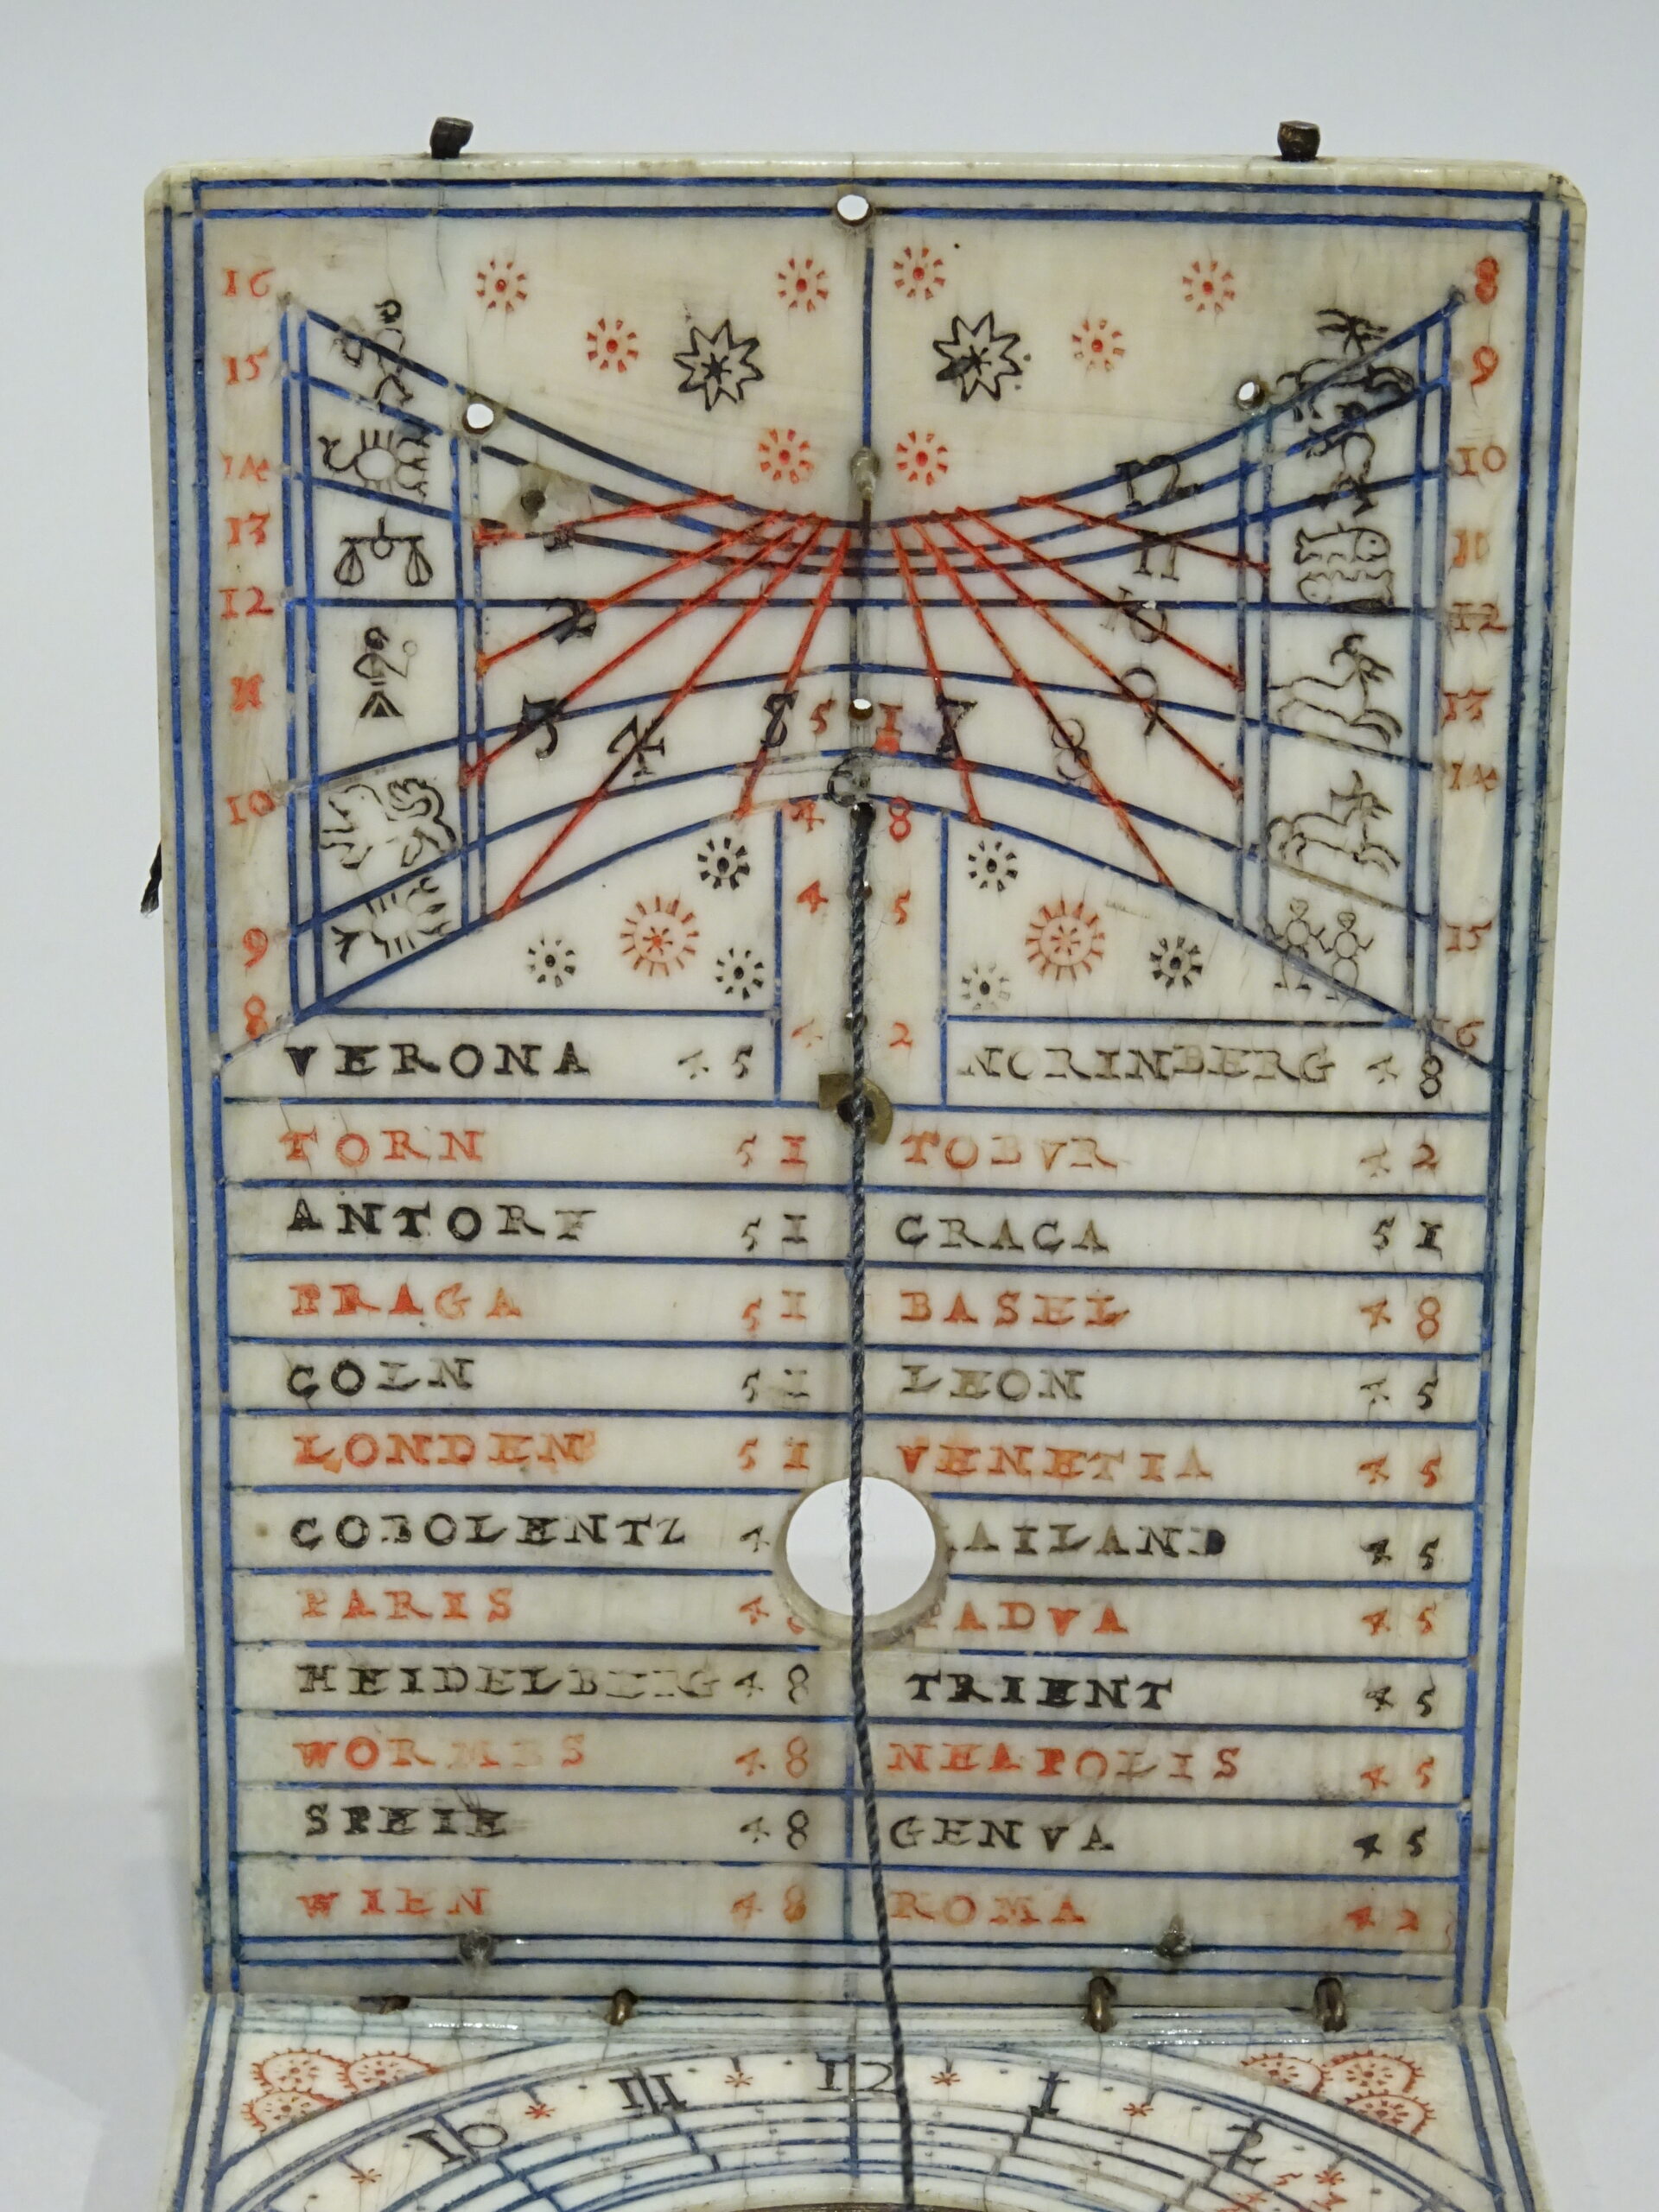 16 8
15 9
14 10
13 11
12 12
11 13
10 14
9 15
8 16
12
1 11
2 10
3 4 5 6 7 8 9
51
48
45
42
VERONA 45 NORINBERG 48
TORN 51 TOBVR 42
ANTORF 51 CRACA 51
PRAGA 51 BASEL 48
COLN 51 LEON 45
LONDEN 51 VENETIA 45
COBOLENTZ 4 AILAND 45
PARIS 4 PADVA 45
HEIDELBERG 48 TRIENT 45
WORMES 48 NEAPOLIS 45
SPEIE 48 GENVA 45
WIEN 48 ROMA 42
10 11 12 1 2